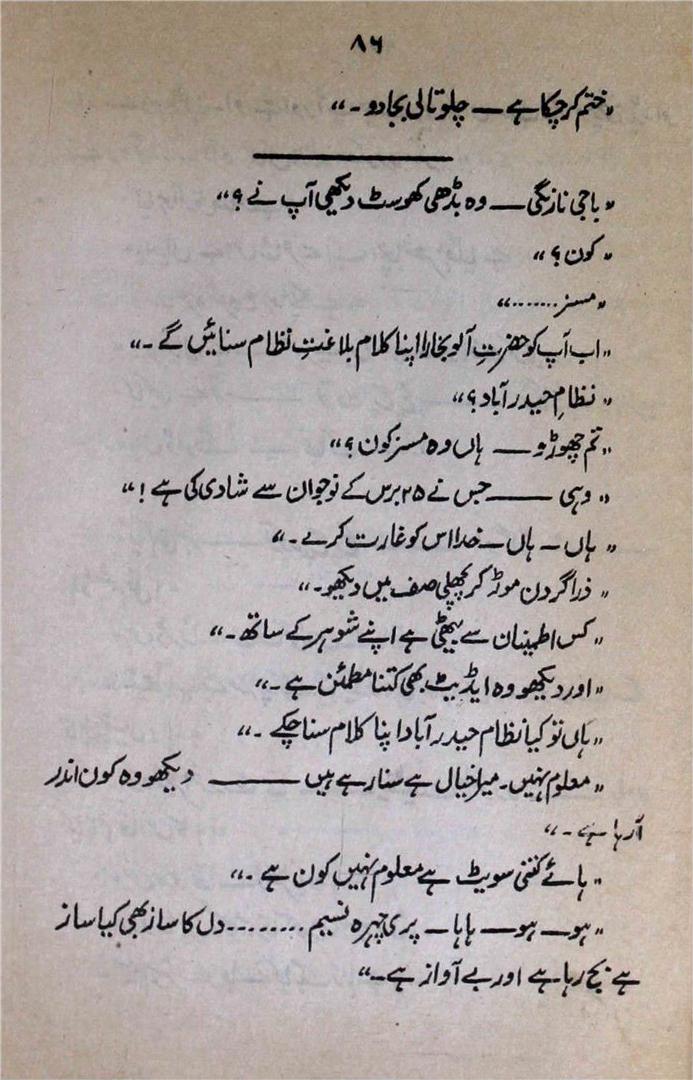 ۸۶
"ختم کر چکا ہے ـــ چلو تالی بجا دو۔"
"باجی نازنگی ـــ وہ بڈھی کھوسٹ دیکھی آپ نے ؟"
"کون ؟"
"مسز ......."
"اب آپ کو حضرتِ آلو بخارا اپنا کلام بلاغتِ نظام سنائیں گے ۔"
"نظامِ حیدر آباد ؟"
"تم چھوڑو ـــ ہاں وہ مسز کون ؟"
"وہی ـــــ جس نے ۲۵ برس کے نوجوان سے شادی کی ہے !"
"ہاں ـ ہاں ـ خدا اس کو غارت کرے ۔"
"ذرا گردن موڑ کر پچھلی صف میں دیکھو ۔"
"کس اطمینان سے بیٹھی ہے اپنے شوہر کے ساتھ ۔"
"اور دیکھو وہ ایڈیٹ بھی کتنا مطمئن ہے ۔"
"ہاں تو کیا نظام حیدر آباد اپنا کلام سنا چکے ۔"
"معلوم نہیں۔ میرا خیال ہے سنا رہے ہیں ـــــ دیکھو وہ کون اندر
آ رہا ہے ۔"
"ہائے کتنی سویٹ ہے معلوم نہیں کون ہے ۔"
"ہو ـ ہو ـ ہاہا ـ پری چہرہ نسیم ........ دل کا ساز بھی کیا ساز
ہے بج رہا ہے اور بے آواز ہے ۔"